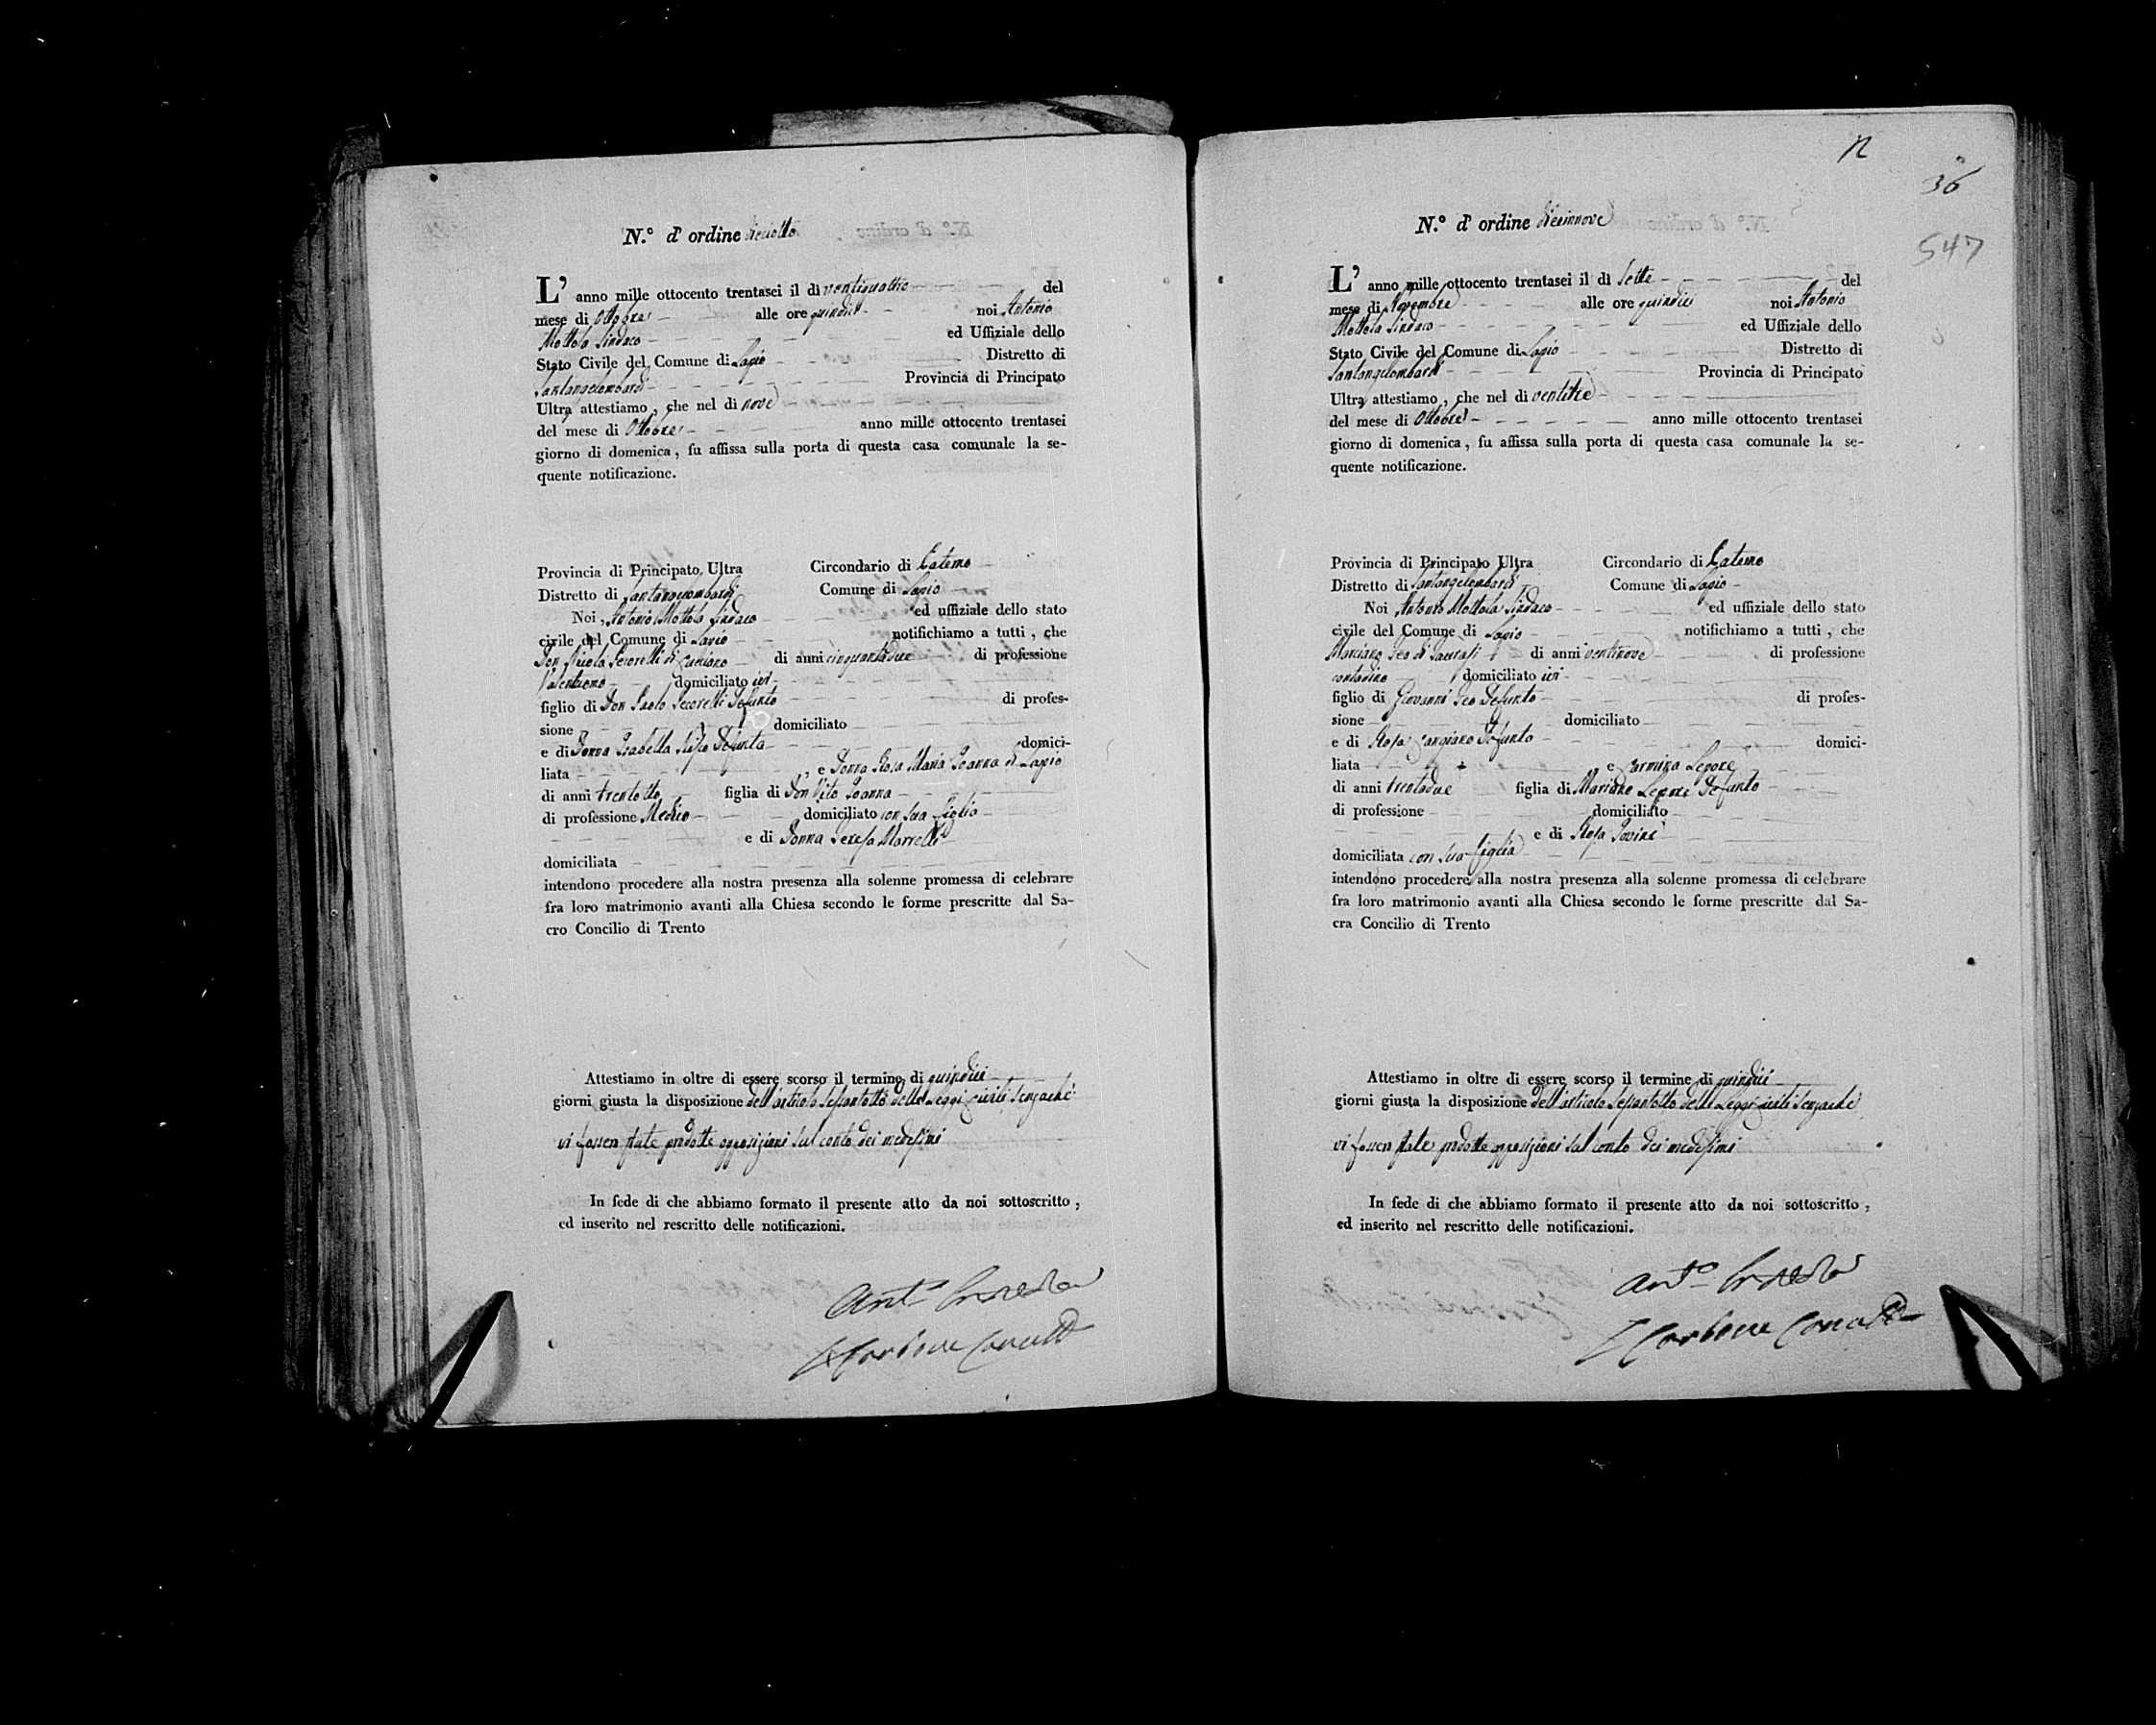 N.º d' ordine dieciotto
L' anno mille ottocento trentasei il dì ventiquattro del
mese di Ottobre alle ore quindici noi Antonio
Mottola Sindaco ed Uffiziale dello
Stato Civile del Comune di Lapio Distretto di
Santangelombardi Provincia di Principato
Ultra attestiamo, che nel dì nove
del mese di Ottobre anno mille ottocento trentasei
giorno di domenica, fu affissa sulla porta di questa casa comunale la se-
quente notificazione.
Provincia di Principato Ultra Circondario di Paterno
Distretto di Santangelombardi Comune di Lapio
Noi Antonio Mottola Sindaco ed uffiziale dello stato
civile del Comune di Lapio notifichiamo a tutti, che
Don Nicola Secorelli di di anni cinquantadue di professione
domiciliato ivi
figlio di Don Paolo Secorelli defunto di profes-
sione domiciliato
e di Donna Isabella defunta domici-
liata , e Donna Rosa Maria Joanna di Lapio
di anni trentotto figlia di Don Vito Joanna
di professione Medico domiciliato con sua figlio
e di Donna Teresa Marrelli
domiciliata
intendono procedere alla nostra presenza alla solenne promessa di celebrare
fra loro matrimonio avanti alla Chiesa secondo le forme prescritte dal Sa-
cro Concilio di Trento
Attestiamo in oltre di essere scorso il termine di quindici
giorni giusta la disposizione dell'articolo sessantotto delle Leggi civili senzache
vi fossero state prodotte opposizioni sul conto dei medesimi
In fede di che abbiamo formato il presente atto da noi sottoscritto,
ed inserito nel rescritto delle notificazioni.
Ant.º
36
547
N.º d' ordine diecinnove
L' anno mille ottocento trentasei il dì sette del
mese di Novembre alle ore quindici noi Antonio
Mottola Sindaco ed Uffiziale dello
Stato Civile del Comune di Lapio Distretto di
Santangelombardi Provincia di Principato
Ultra attestiamo, che nel dì ventitre
del mese di Ottobre anno mille ottocento trentasei
giorno di domenica, fu affissa sulla porta di questa casa comunale la se-
quente notificazione.
Provincia di Principato Ultra Circondario di Paterno
Distretto di Santangelombardi Comune di Lapio
Noi Antonio Mottola Sindaco ed uffiziale dello stato
civile del Comune di Lapio notifichiamo a tutti, che
Marciano Feo di Taurasi di anni ventinove di professione
contadino domiciliato ivi
figlio di Giovanni Feo defunto di profes-
sione domiciliato
e di Rosa Cangiano defunto domici-
liata , e Carmina Lepore
di anni trentadue figlia di Mariano Lepore defunto
di professione domiciliato
e di Rosa Iovine
domiciliata con sua figlia
intendono procedere alla nostra presenza alla solenne promessa di celebrare
fra loro matrimonio avanti alla Chiesa secondo le forme prescritte dal Sa-
cra Concilio di Trento
Attestiamo in oltre di essere scorso il termine di quindici
giorni giusta la disposizione dell'articolo sessantotto delle Leggi civili senzache
vi fossero state prodotte opposizioni sul conto dei medesimi
In fede di che abbiamo formato il presente atto da noi sottoscritto,
ed inserito nel rescritto delle notificazioni.
Ant.º